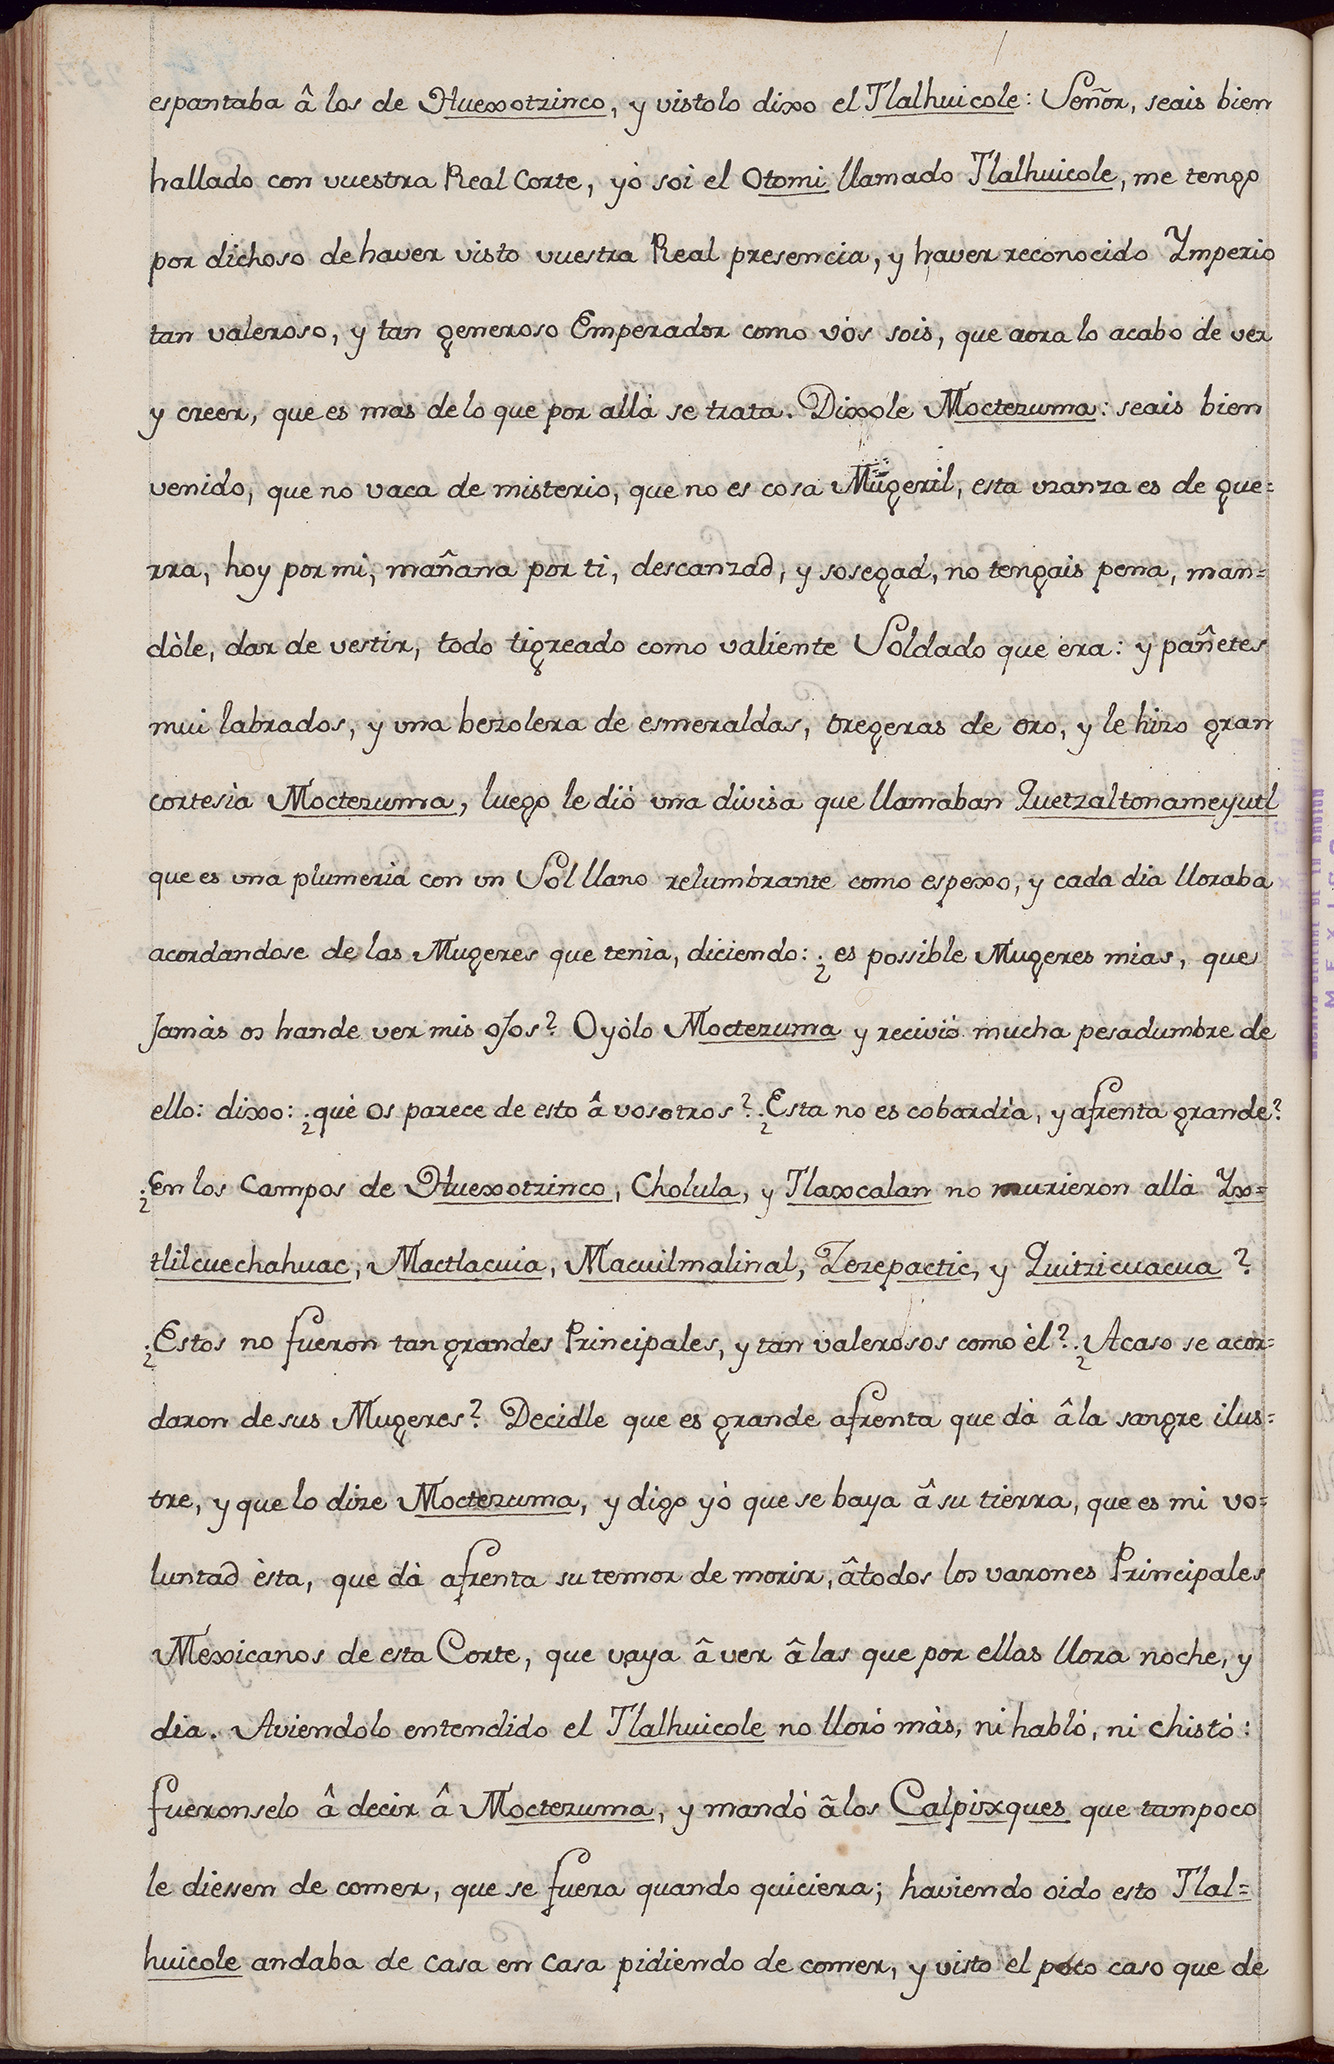 espantaba â los de Huexotzinco, y vistolo dixo el Tlalhuicole: Señor, seais bien
hallado con vuestra Real Corte, yò soi el Otomi llamado Tlalhuicole, me tengo
por dichoso de haver visto vuestra Real presencia, y haver reconocido Ymperio
tan valeroso, y tan generoso Emperador como vòs sois, que aora lo acabo de ver
y creer, que es mas de lo que por allà se trata. Dixole Moctezuma: seais bien
venido, que no vaca de misterio, que no es cosa Mugeril, esta vzanza es de gue=
rra, hoy por mi, mañana por ti, descanzad, y sosegad, no tengais pena, man=
dòle, dar de vestir, todo tigreado como valiente Soldado que era: y pañetes
mui labrados, y vna bezolera de esmeraldas, oregeras de oro, y le hizo gran
cortesìa Moctezuma, luego le diò vna divisa que llamaban Quetzaltonameyutl
que es vna plumeria con vn Sol llano relumbrante como espexo, y cada dia lloraba
acordandose de las Mugeres que tenìa, diciendo: ¿es possible Mugeres mias, que
Jamàs os hande ver mis ojos? Oyòlo Moctezuma y reciviò mucha pesadumbre de
ello: dixo: ¿què os parece de esto â vosotros? ¿Esta no es cobardìa, y afrenta grande?
¿En los Campos de Huexotzinco, Cholula, y Tlaxcalan no murieron allà Yx=
tlilcuechahuac, Mactlacuia, Macuilmalinal, Zezepactic, y Quitzicuacua?
¿Estos no fueron tan grandes Principales, y tan valerosos como èl? ¿Acaso se acor=
daron de sus Mugeres? Decidle que es grande afrenta que dà â la sangre ilus=
tre, y que lo dize Moctezuma, y digo yò que se baya â su tierra, que es mi vo=
luntad èsta, que dà afrenta su temor de morir, â todos los varones Principales
Mexicanos de esta Corte, que vaya â ver â las que por ellas llora noche, y
dia. Aviendolo entendido el Tlalhuicole no llorò màs, ni hablò, ni chistò:
fueronselo â decir â Moctezuma, y mandò â los Calpixques que tampoco
le diessen de comer, que se fuera quando quiciera; haviendo oido esto Tlal=
huicole andaba de casa en casa pidiendo de comer, y visto el poco caso que de